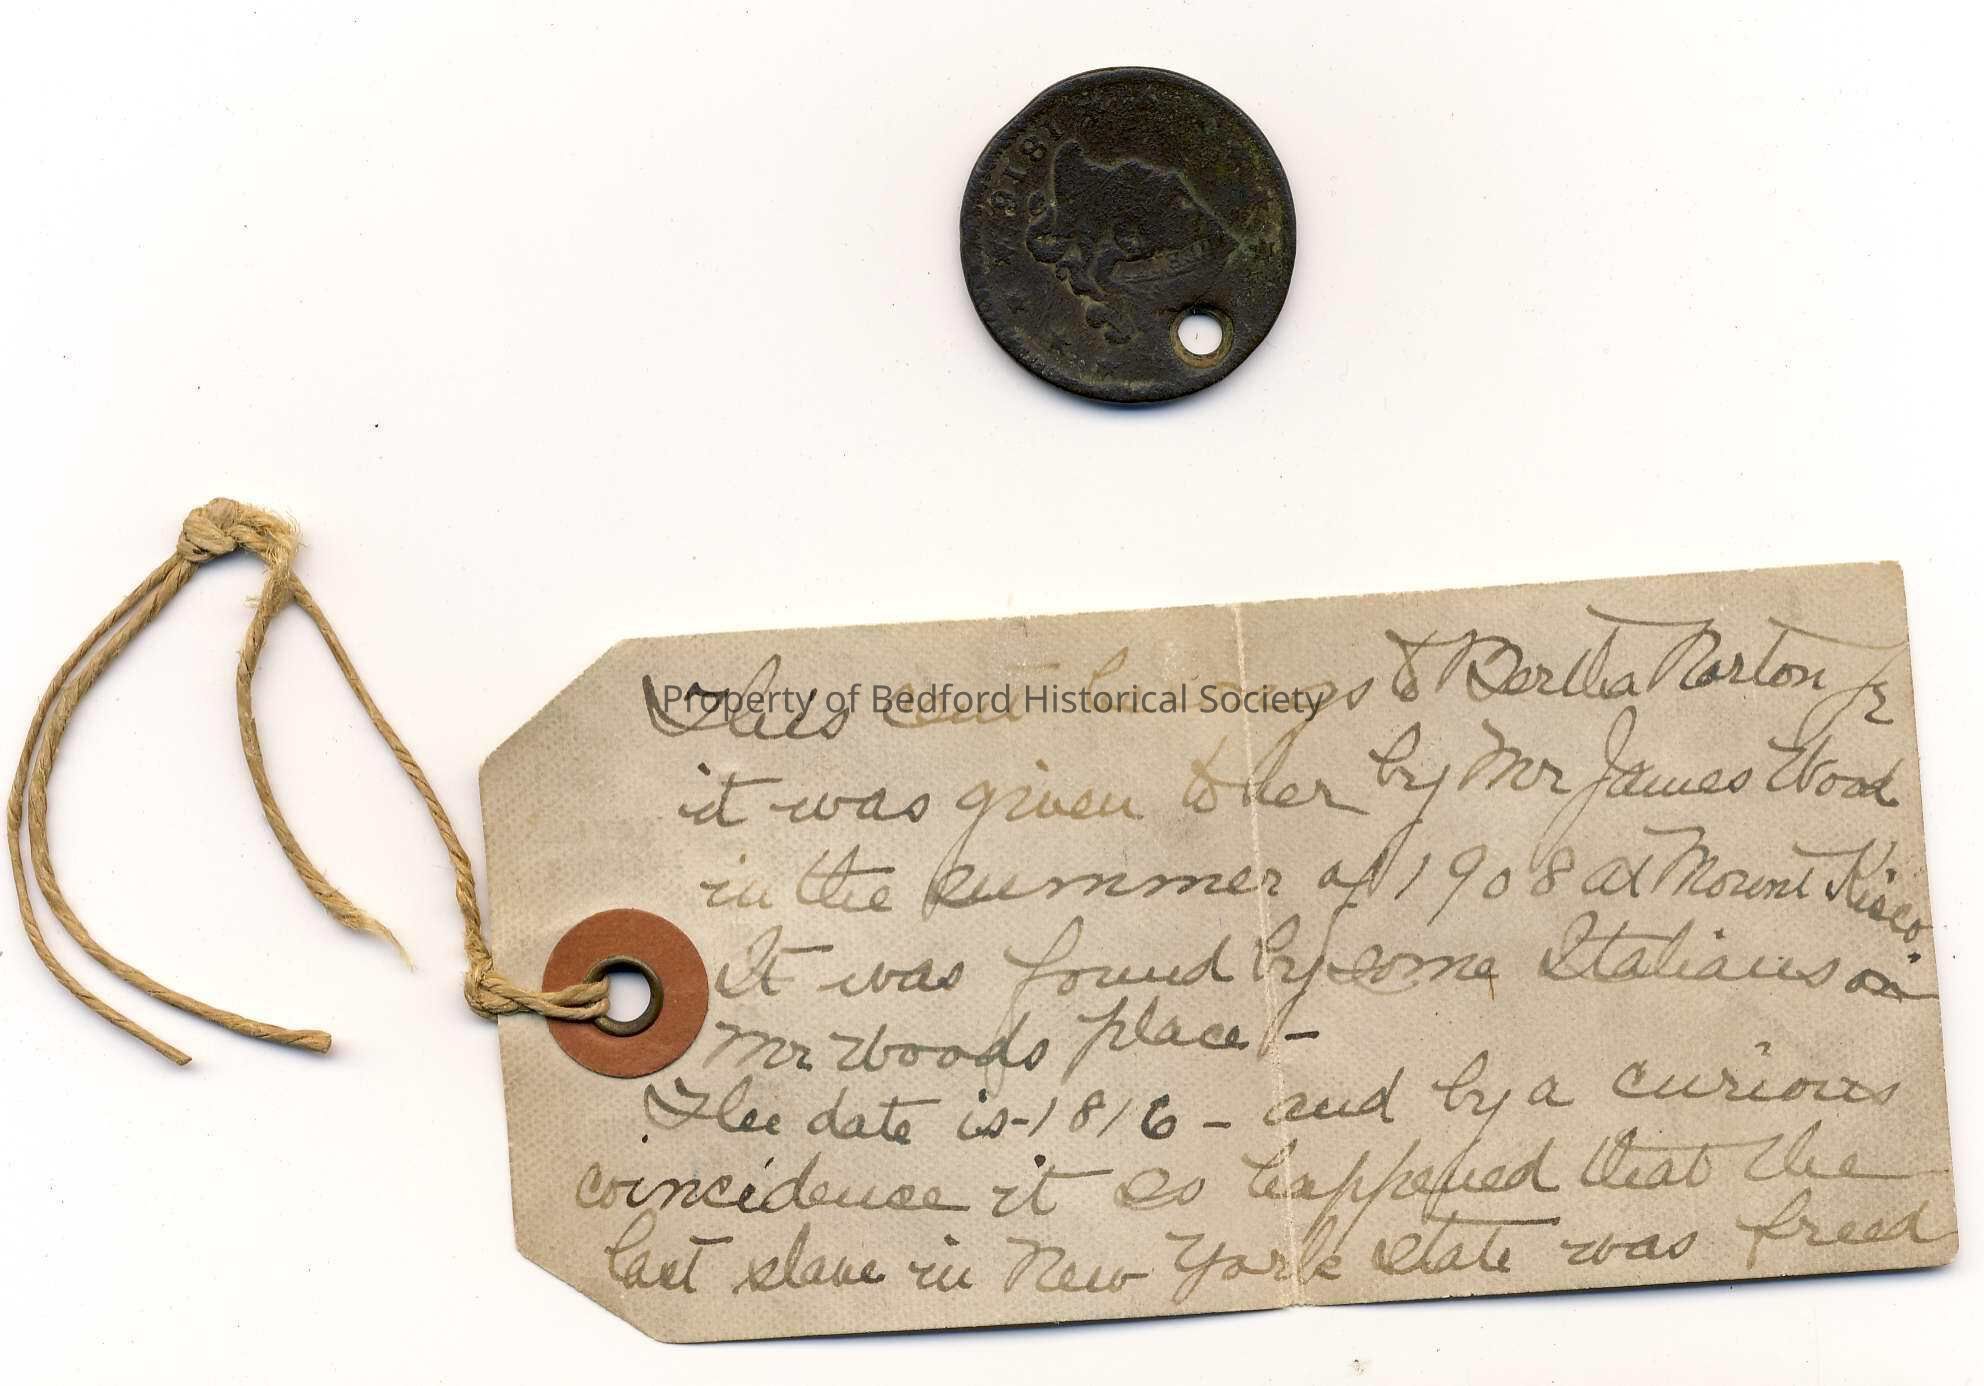 1816
Property of Bedford Historical Society
This cent belongs to Bertha Norton Jr
it was given to her by Mr James Wood
in the summer of 1908 at Mount Kisco
It was found by some Italians on
Mr Woods place -
The date is - 1816 - and by a curious
coincidence it so happened that the
last slave in New York State was freed